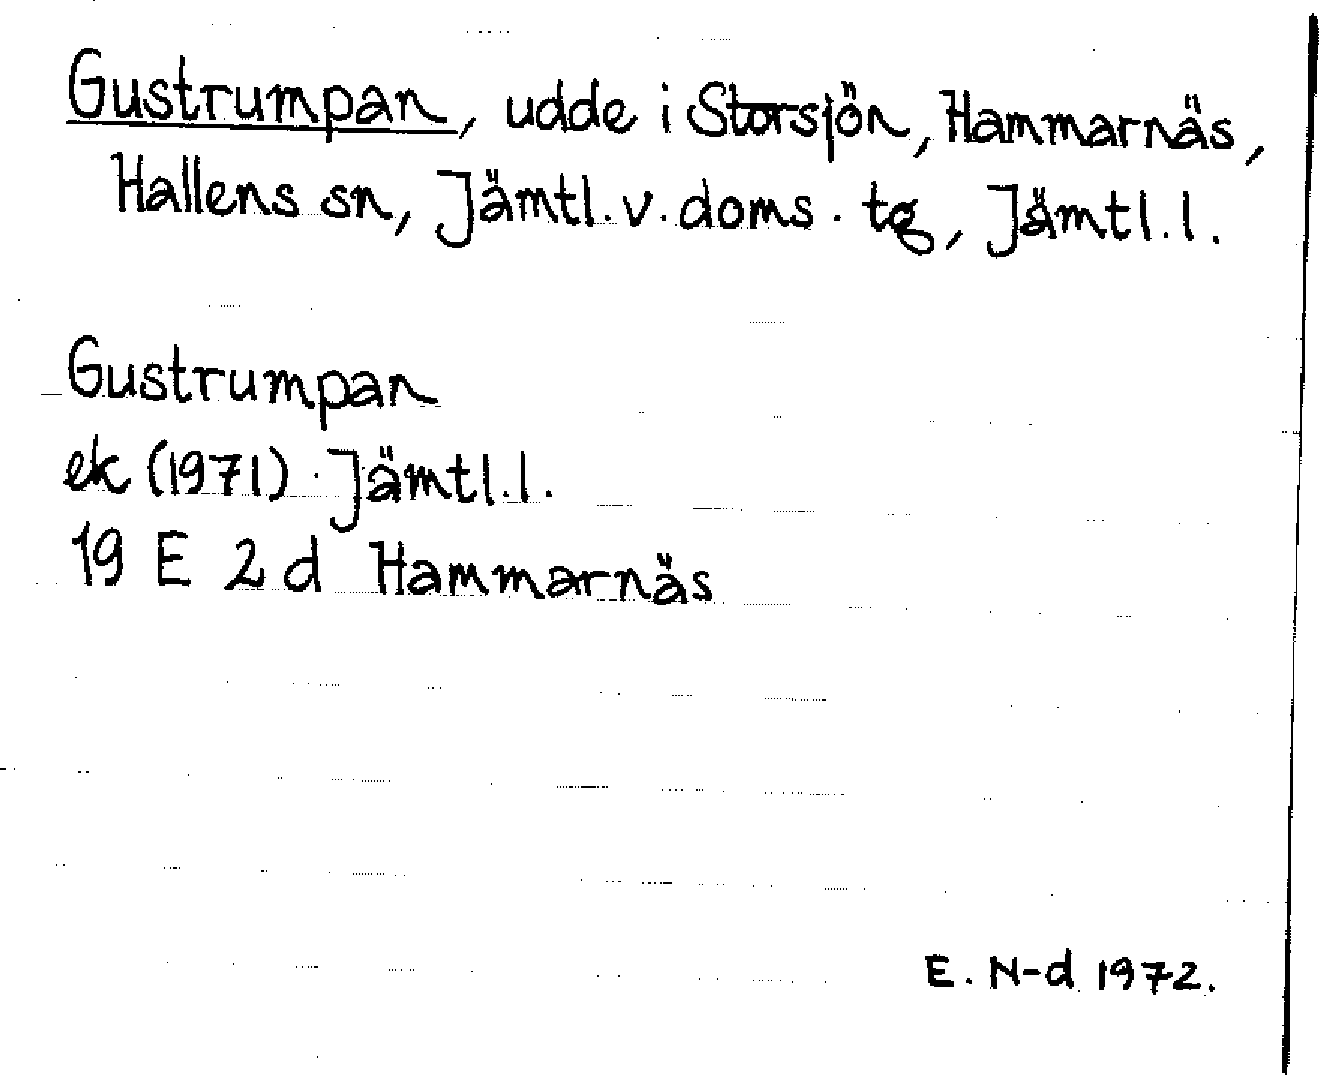 Gustrumpan, udde i Storsjön, Hammarnäs,
Hallens sn, Jämtl. v. doms. tg, Jämtl. l.
Gustrumpan
ek (1971) Jämtl. l.
19 E 2 d Hammarnäs
E. N-d 1972.